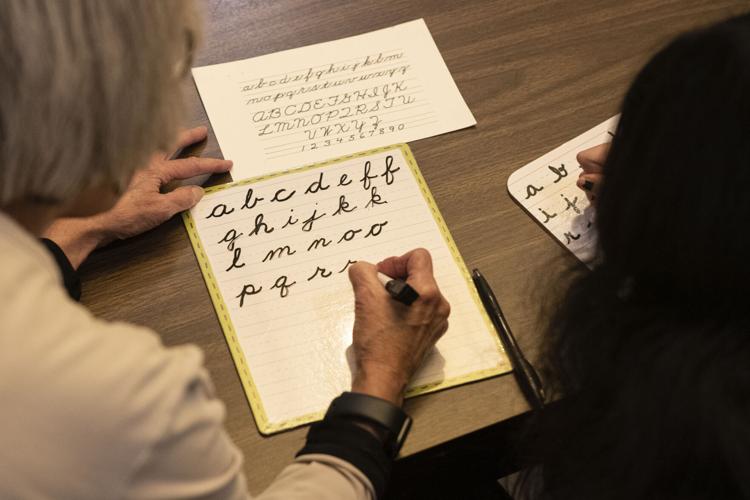 abcdefghijklm
nopqrstuvwxyz
ABCDEFGHIJK
LMNOPQRSTU
VWXYZ
1234567890
a b c d e f f
g h i j k k
l m n o o
p q r r
a b
i j
r